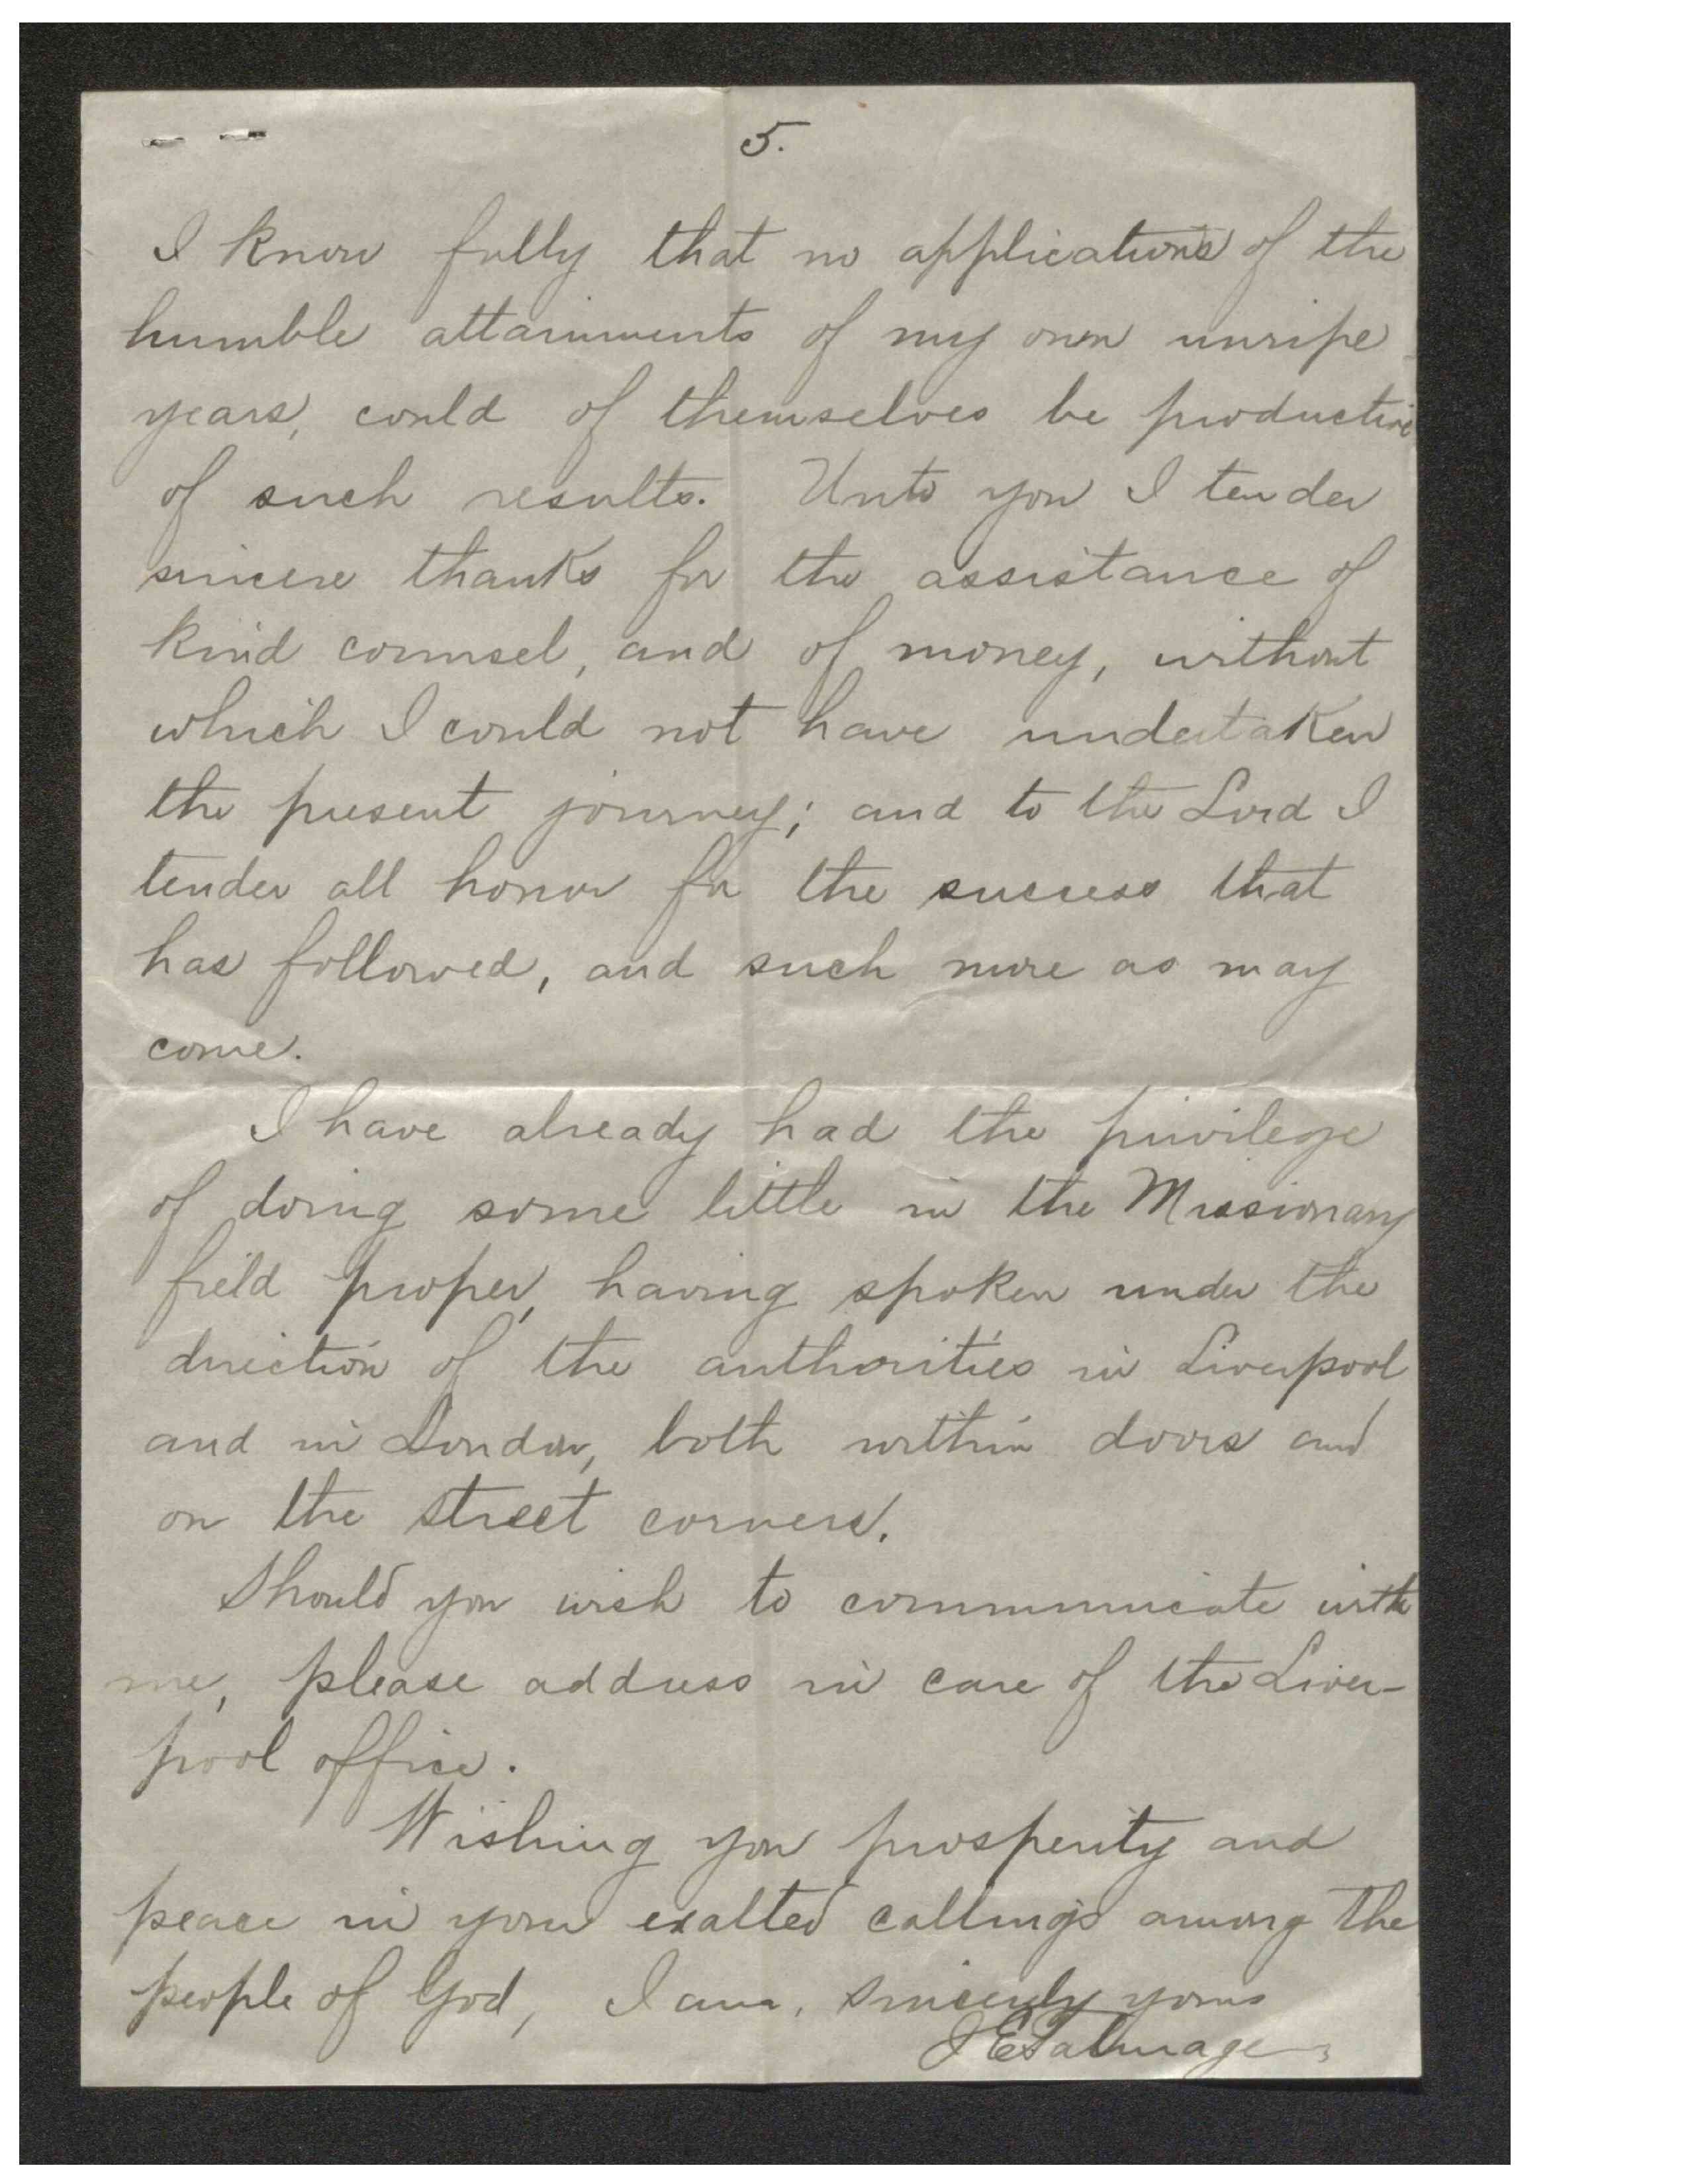 5.
I know fully that no applications of the
humble attainments of my own unripe
years, could of themselves be productive
of such results. Unto you I tender
sincere thanks for the assistance of
kind counsel, and of money, without
which I could not have undertaken
the present journey; and to the Lord I
tender all honor for the success that
has followed, and such more as may
come.
I have already had the privilege
of doing some little in the Missionary
field proper, having spoken under the
direction of the authorities in Liverpool
and in London, both within doors and
on the street corners.
Should you wish to communicate with
me, please address in care of the Liver-
pool office.
Wishing you prosperity and
peace in your exalted callings among the
people of God, I am, sincerely yours
J E Talmage